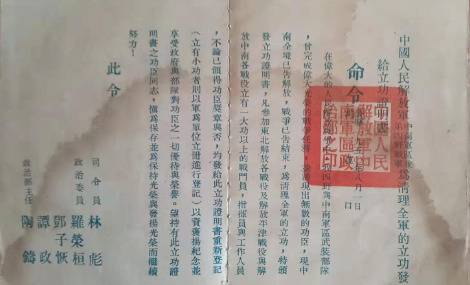 中國人民解放軍中南軍區為清理全軍的立功發
給立功證明書
命令
在偉大的人民
曾完成偉大光榮的戰爭任務，湧現出無數的功臣，現中
南全境已告解放，戰爭已告結束，為清理全軍的立功，特頒
發立功證明書，凡參加東北解放各戰役及解放平津戰役與解
放中南各戰役立有一大功以上的戰鬥員，指揮員與工作人員
，不論已領得功臣獎章與否，均發給此立功證明書重新登記
（立有小功者則以軍為單位立冊進行登記）以資褒揚紀念並
享受政府與部隊對功臣之一切優待與榮譽。望持有此立功證
明書之功臣同志，慎為保存並為保持光榮與發揚光榮而繼續
努力！
此令
司令員 林彪
政治委員 羅榮桓
鄧子恢
譚政
政治部主任 陶鑄